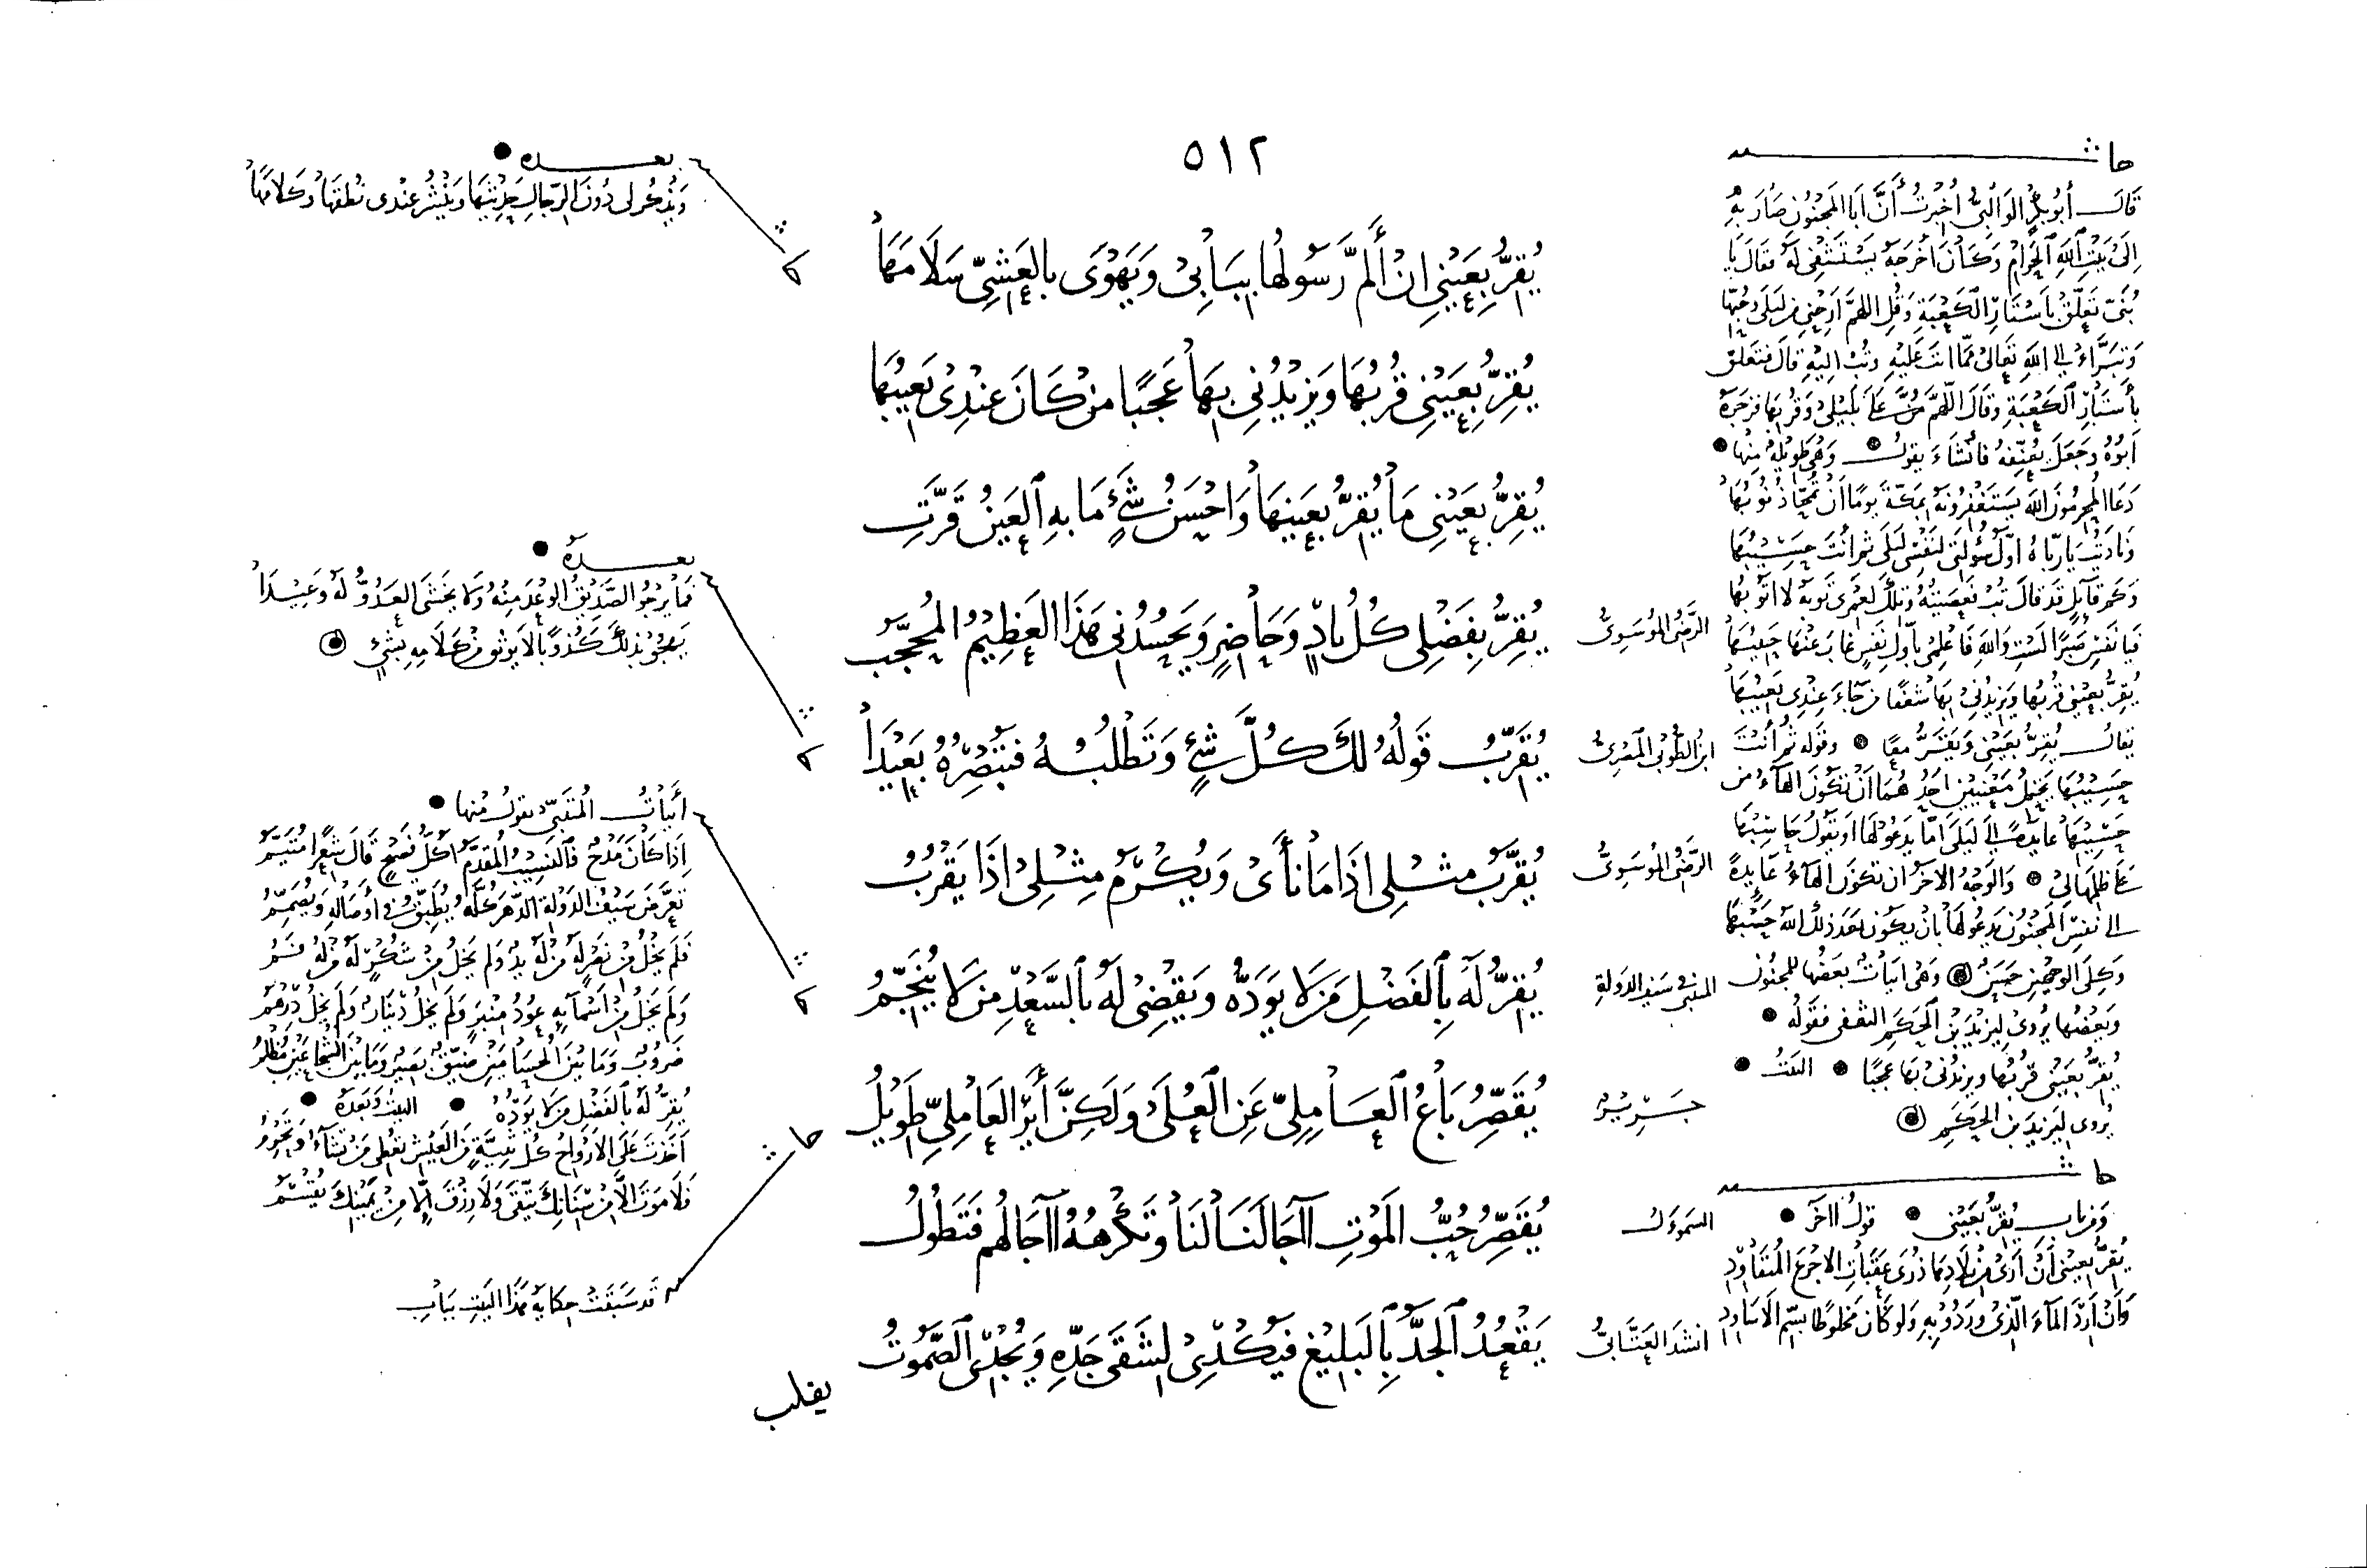 ٥١٢
حاشـــية
قَالَ أَبُو بَكْرٍ الوَالِبِيُّ أُخْبِرْتُ أَنَّ أَبَا المَجْنُونِ صَارَ بِهِ
إِلَى بَيْتِ اللَّهِ الحَرَامِ وَكَانَ أَخْرَجَهُ يَسْتَشْفِي لَهُ فَقَالَ يَا
بُنَيَّ تَعَلَّقْ بِأَسْتَارِ الكَعْبَةِ وَقُلِ اللهُمَّ أَرِحْنِي مِن لَيْلَى وَحُبِّهَا
وَتَبَرَّأْ إِلَى اللَّهِ تَعَالَى مِمَّا أنتَ عَلَيْهِ وَتُبْ إِلَيْهِ قَالَ فَتَعَلَّقَ
بِأَسْتَارِ الكَعْبَةِ وَقَالَ اللَّهُمَّ مُنَّ عَلَيَّ بِلَيْلَى وَقُرْبِهَا فَزَجَرَهُ
أَبُوهُ وَجَعَلَ يُعَنِّفُهُ فَأَنْشَأَ يَقُولُ وَهِيَ طَوِيلَةٌ مِنْهَا
دَعَا المُحْرِمُونَ اللهَ يَسْتَغْفِرُونَهُ بِمَكَّةَ يَوْمًا أَنْ تُمَحَّا ذُنُوبُهَا
وَنَادَيْتُ يَا رَبَّاهُ أَوَّلُ سُؤْلَتِي لِنَفْسِي لَيْلَى ثُمَّ أَنْتَ حَسِيبُهَا
وَكَمْ قَائِلٍ قَدْ قَالَ تُبْ فَعَصَيْتُهُ وَتِلْكَ لَعَمْرِي تَوْبَةٌ لَا أَتُوبُهَا
فَيَا نَفْسِ صَبْرًا لَسْتِ وَاللَّهِ فَاعْلَمِي بِأَوَّلِ نَفْسٍ غَابَ عَنْهَا حَبِيبُهَا
يُقِرُّ بِعَيْنِي قُرْبُهَا وَيَزِيدُنِي بِهَا شَغَفًا مَنْ جَاءَ عِنْدِي يَعِيبُهَا
يُقَالُ يُقِرُّ بِعَيْنِي وَيَقَرُّ مَعًا وَقَوْلُهُ ثُمَّ أَنْتَ
حَسِيبُهَا يَحْتَمِلُ مَعْنَيَيْنِ أَحَدُهُمَا أَنْ تَكُونَ الهَاءُ مِن
حَسِيبِهَا عَائِدَةً إِلَى لَيْلَى إِمَّا يَدْعُو لَهَا أَوْ يَقُولُ حَاسِبْهَا
عَلَى ظُلْمِهَا لِي وَالوَجْهُ الآخَرُ أَن تَكُونَ الهَاءُ عَائِدَةً
إِلَى نَفْسِ المَجْنُونِ يَدْعُو لَهَا بِأَنْ يَكُونَ بَعْدَ ذَلِكَ اللهُ حَسِيبُهَا
وَكِلَى الوَجْهَيْنِ حَسَنٌ وَهِيَ أَبْيَاتٌ بَعْضُهَا لِلمَجْنُونِ
وَبَعْضُهَا يُرْوَى لِيَزِيدَ بْنِ الحَكَمِ الثقفي فَقَوْلُهُ
يُقِرُّ بِعَيْنِي قُرْبُهَا وَيَزِيدُنِي بِهَا عَجَبًا البَيْتُ
يُرْوَى لِيَزِيدَ بْنِ الحَكَمِ
حاشـــية
وَمِن بَابِ يُقِرُّ بِعَيْنِي قَوْلُ الآخَرِ
يُقِرُّ بِعَيْنِي أَنْ أَرَى مِنْ بِلَادِهَا ذُرَى عَقِدَاتِ الأَجْرَعِ المُتَقَاوِدِ
وَأَنْ أَرِدَ المَاءَ الَّذِي وَرَدَتْ بِهِ وَلَوْ كَانَ مَخْلُوطًا بِسَمِّ الأَسَاوِدِ
يُقِرُّ بِعَيْنِي انْ أَلَمَّ رَسُولُهَا بِبَابِي وَيَهْوَى بِالعَشِيِّ سَلَامَهَا
يُقِرُّ بِعَيْنِي قُرْبُهَا وَيَزِيدُنِي بِهَا عَجَبًا مَنْ كَانَ عِنْدِي يَعِيبُهَا
يُقِرُّ بِعَيْنِي مَا يُقِرُّ بِعَيْنِهَا وَأَحْسَنُ شَيْءٍ مَا بِهِ العَيْنُ قَرَّتِ
الرَّضِيُّ المُوسَوِيُّ يُقِرُّ بِفَضْلِي كُلُّ بَادٍ وَحَاضِرٍ وَيَحْسُدُنِي هَذَا العَظِيمُ المُحَجَّبُ
المصري يُقَرِّبُ قَوْلُهُ لَكَ كُلَّ شَيْءٍ وَتَطْلُبُهُ فَتُبْصِرُهُ بَعِيدَا
الرَّضِيُّ المُوسَوِيُّ يُقَرَّبُ مِثْلِي إِذَا مَا نَأَى وَيُكْرَمُ مِثْلِي إِذَا يَقْرُبُ
المتنبي في سَيْفِ الدَّوْلَةِ يُقِرُّ لَهُ بِالفَضْلِ مَنْ لَا يَوَدُّهُ وَيَقْضِي لَهُ بِالسَّعْدِ مَنْ لَا يُنَجِّمُ
جَرِيرٌ يُقَصِّرُ بَاعُ العَامِلِيِّ عَنِ العُلَى وَلَكِنَّ أَيْرَ العَامِلِيِّ طَوِيلُ
السموءل يُقَصِّرُ حُبُّ المَوْتِ آجَالَنَا لَنَا وَتَكْرَهُهُ آجَالُهُمْ فَتَطُولُ
انشد العَتَّابِيُّ يَقْعُدُ الجَدُّ بِالبَلِيغِ فَيُكْدِي لِشَقَى جَدِّهِ وَيُجْدِي الصَّمُوتُ
يقلب
بعـــده
وَيُذْخَرُ لِي دُونَ الرِّجَالِ حَدِيثُهَا وَيُنْثَرُ عِنْدِي نُطْقُهَا وَكَلَامُهَا
بعـــده
فَمَا يَرْجُو الصَّدِيقُ الوَعْدَ مِنْهُ وَلَا يَخْشَى العَدُوُّ لَهُ وَعِيدَا
يَهْجُو بِذَلِكَ كَذُوبًا لَا يُوثَقُ مِنْ كَلَامِهِ بِشَيْءٍ
أَبْيَاتُ المُتَنَبِّي يَقُولُ مِنْهَا
إِذَا كَانَ مَدْحٌ فَالنَّسِيبُ المُقَدَّمُ أَكُلُّ فَصِيحٍ قَالَ شِعْرًا مُتَيَّمُ
تَعَرَّضَ سَيْفُ الدَّوْلَةِ الدَّهْرَ كُلَّهُ يُطَبِّقُ فِي أَوْصَالِهِ وَيُصَمِّمُ
فَلَمْ يَخْلُ مِنْ نَصْرٍ لَهُ مَنْ لَهُ يَدٌ وَلَمْ يَخْلُ مِنْ شُكْرٍ لَهُ مَنْ لَهُ فَمُ
وَلَمْ يَخْلُ مِنْ أَسْمَائِهِ عُودُ مِنْبَرٍ وَلَمْ يَخْلُ دِينَارٌ وَلَمْ يَخْلُ دِرْهَمُ
ضَرُوبٌ وَمَا بَيْنَ الحُسَامَيْنِ ضَيِّقٌ بَصِيرٌ وَمَا بَيْنَ الشُّجَاعَيْنِ مُظْلِمُ
يُقِرُّ لَهُ بِالفَضْلِ مَنْ لَا يَوَدُّهُ البيت وَبَعْدَهُ
أَخَذْتَ عَلَى الأَرْوَاحِ كُلَّ ثَنِيَّةٍ مِنَ العَيْشِ تُعْطِي مَنْ تَشَاءُ وَتَحْرِمُ
فَلَا مَوْتَ إِلَّا مِنْ سِنَانِكَ يُتَّقَى وَلَا رِزْقَ إِلَّا مِنْ يَمِينِكَ يُقْسَمُ
حاشية
قَدْ سَبَقَتْ حِكَايَةُ هَذَا البَيْتِ بِبَابِ